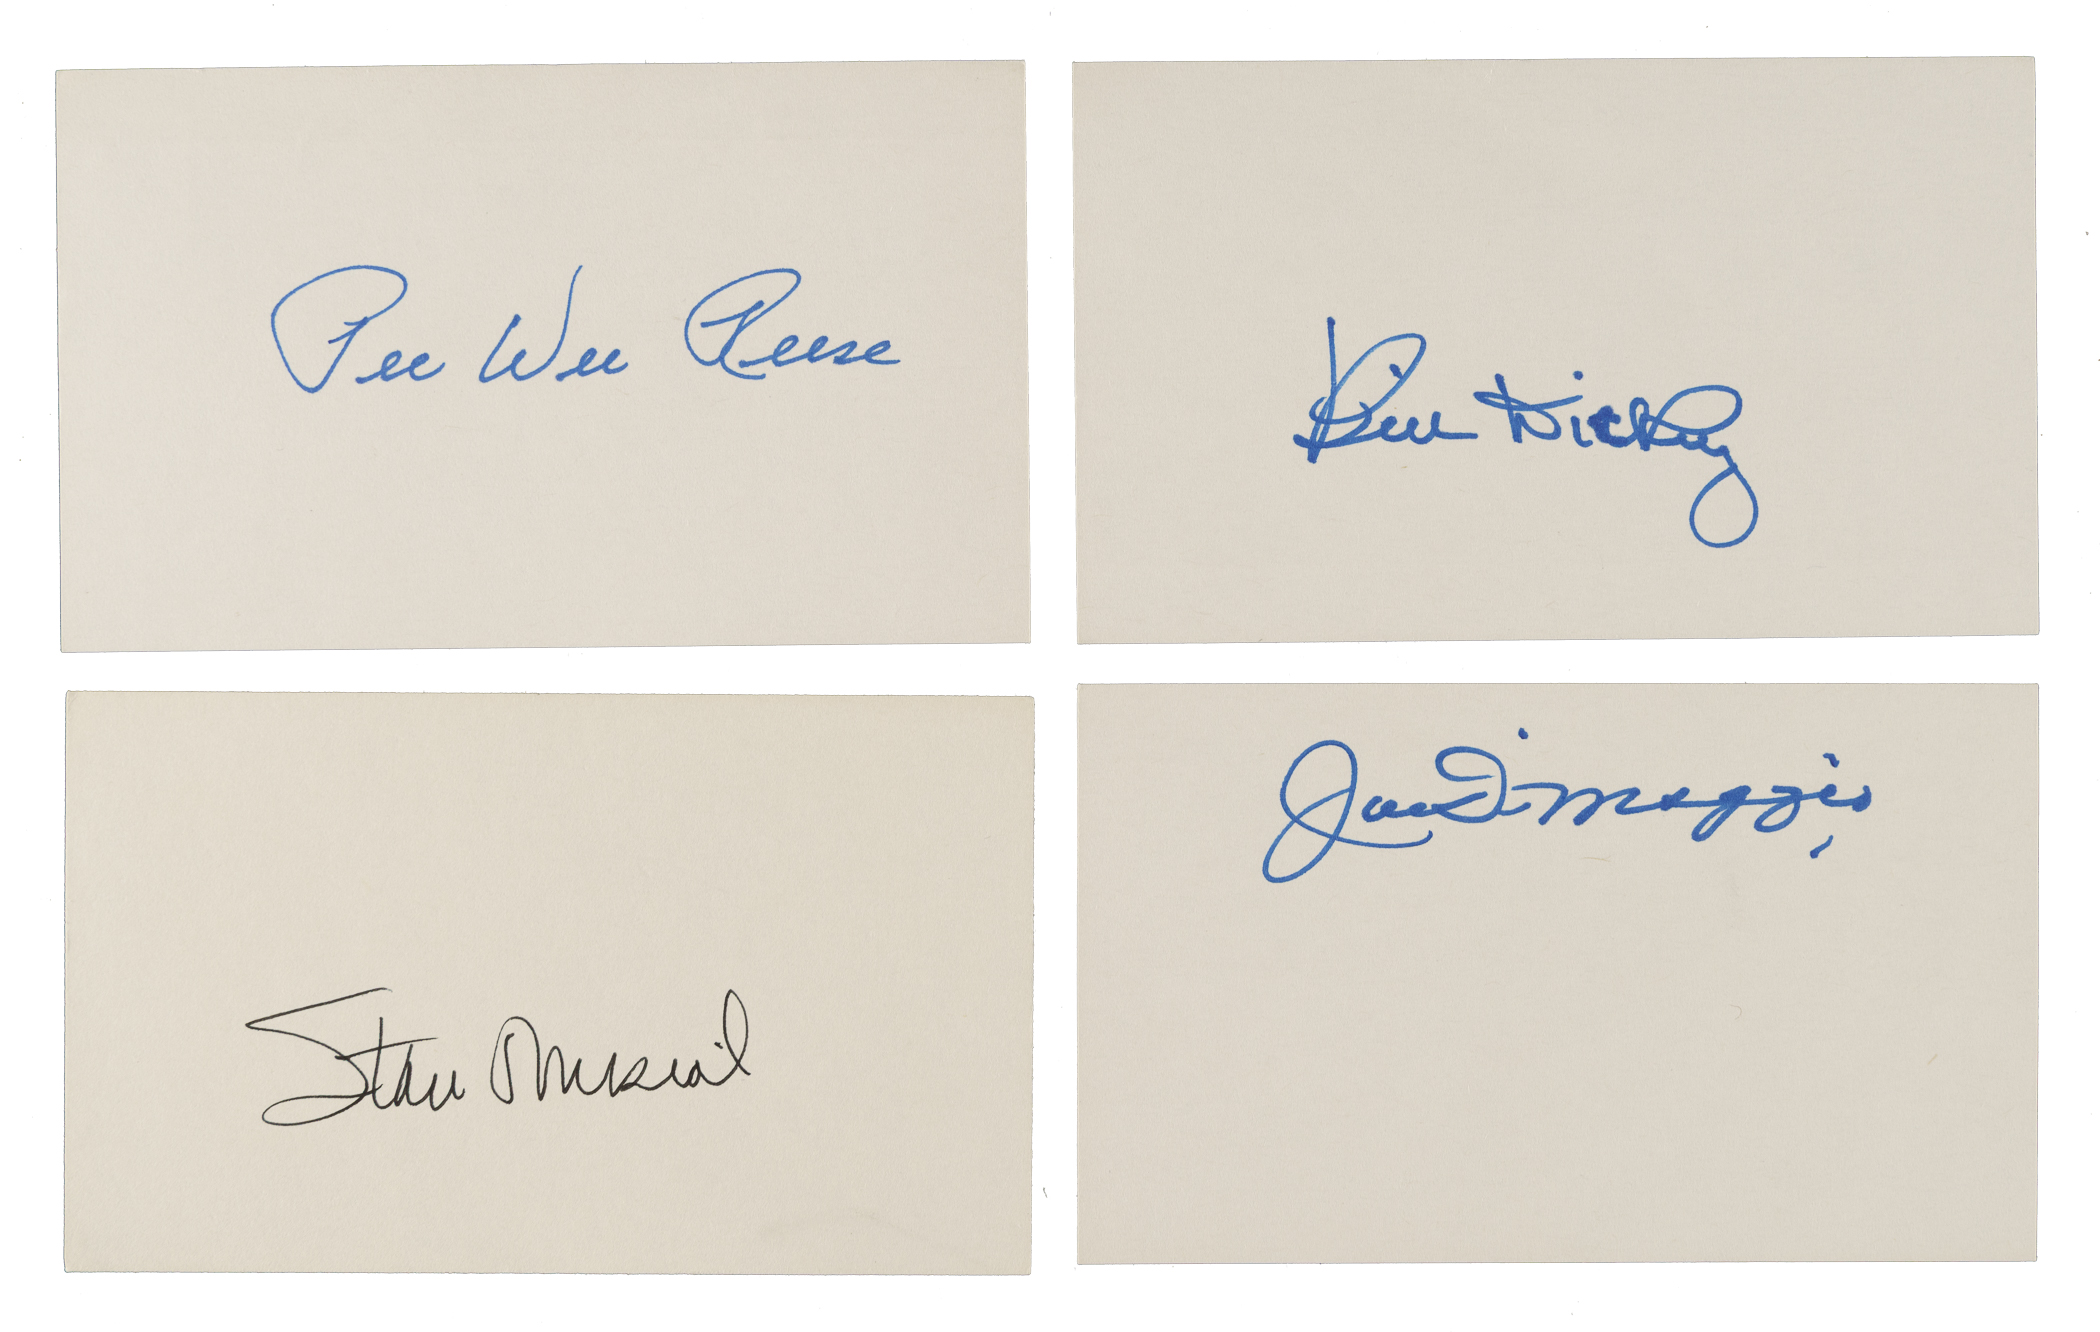 Pee Wee Reese
Bill Dickey
Stan Musial
Joe DiMaggio